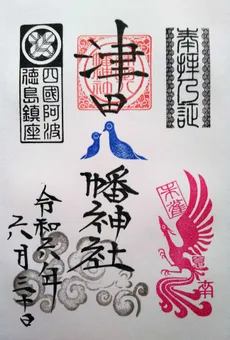 奉拝之証
津田
八幡神社
四國阿波
徳島鎮座
令和六年
六月三十日
朱雀
夏
南